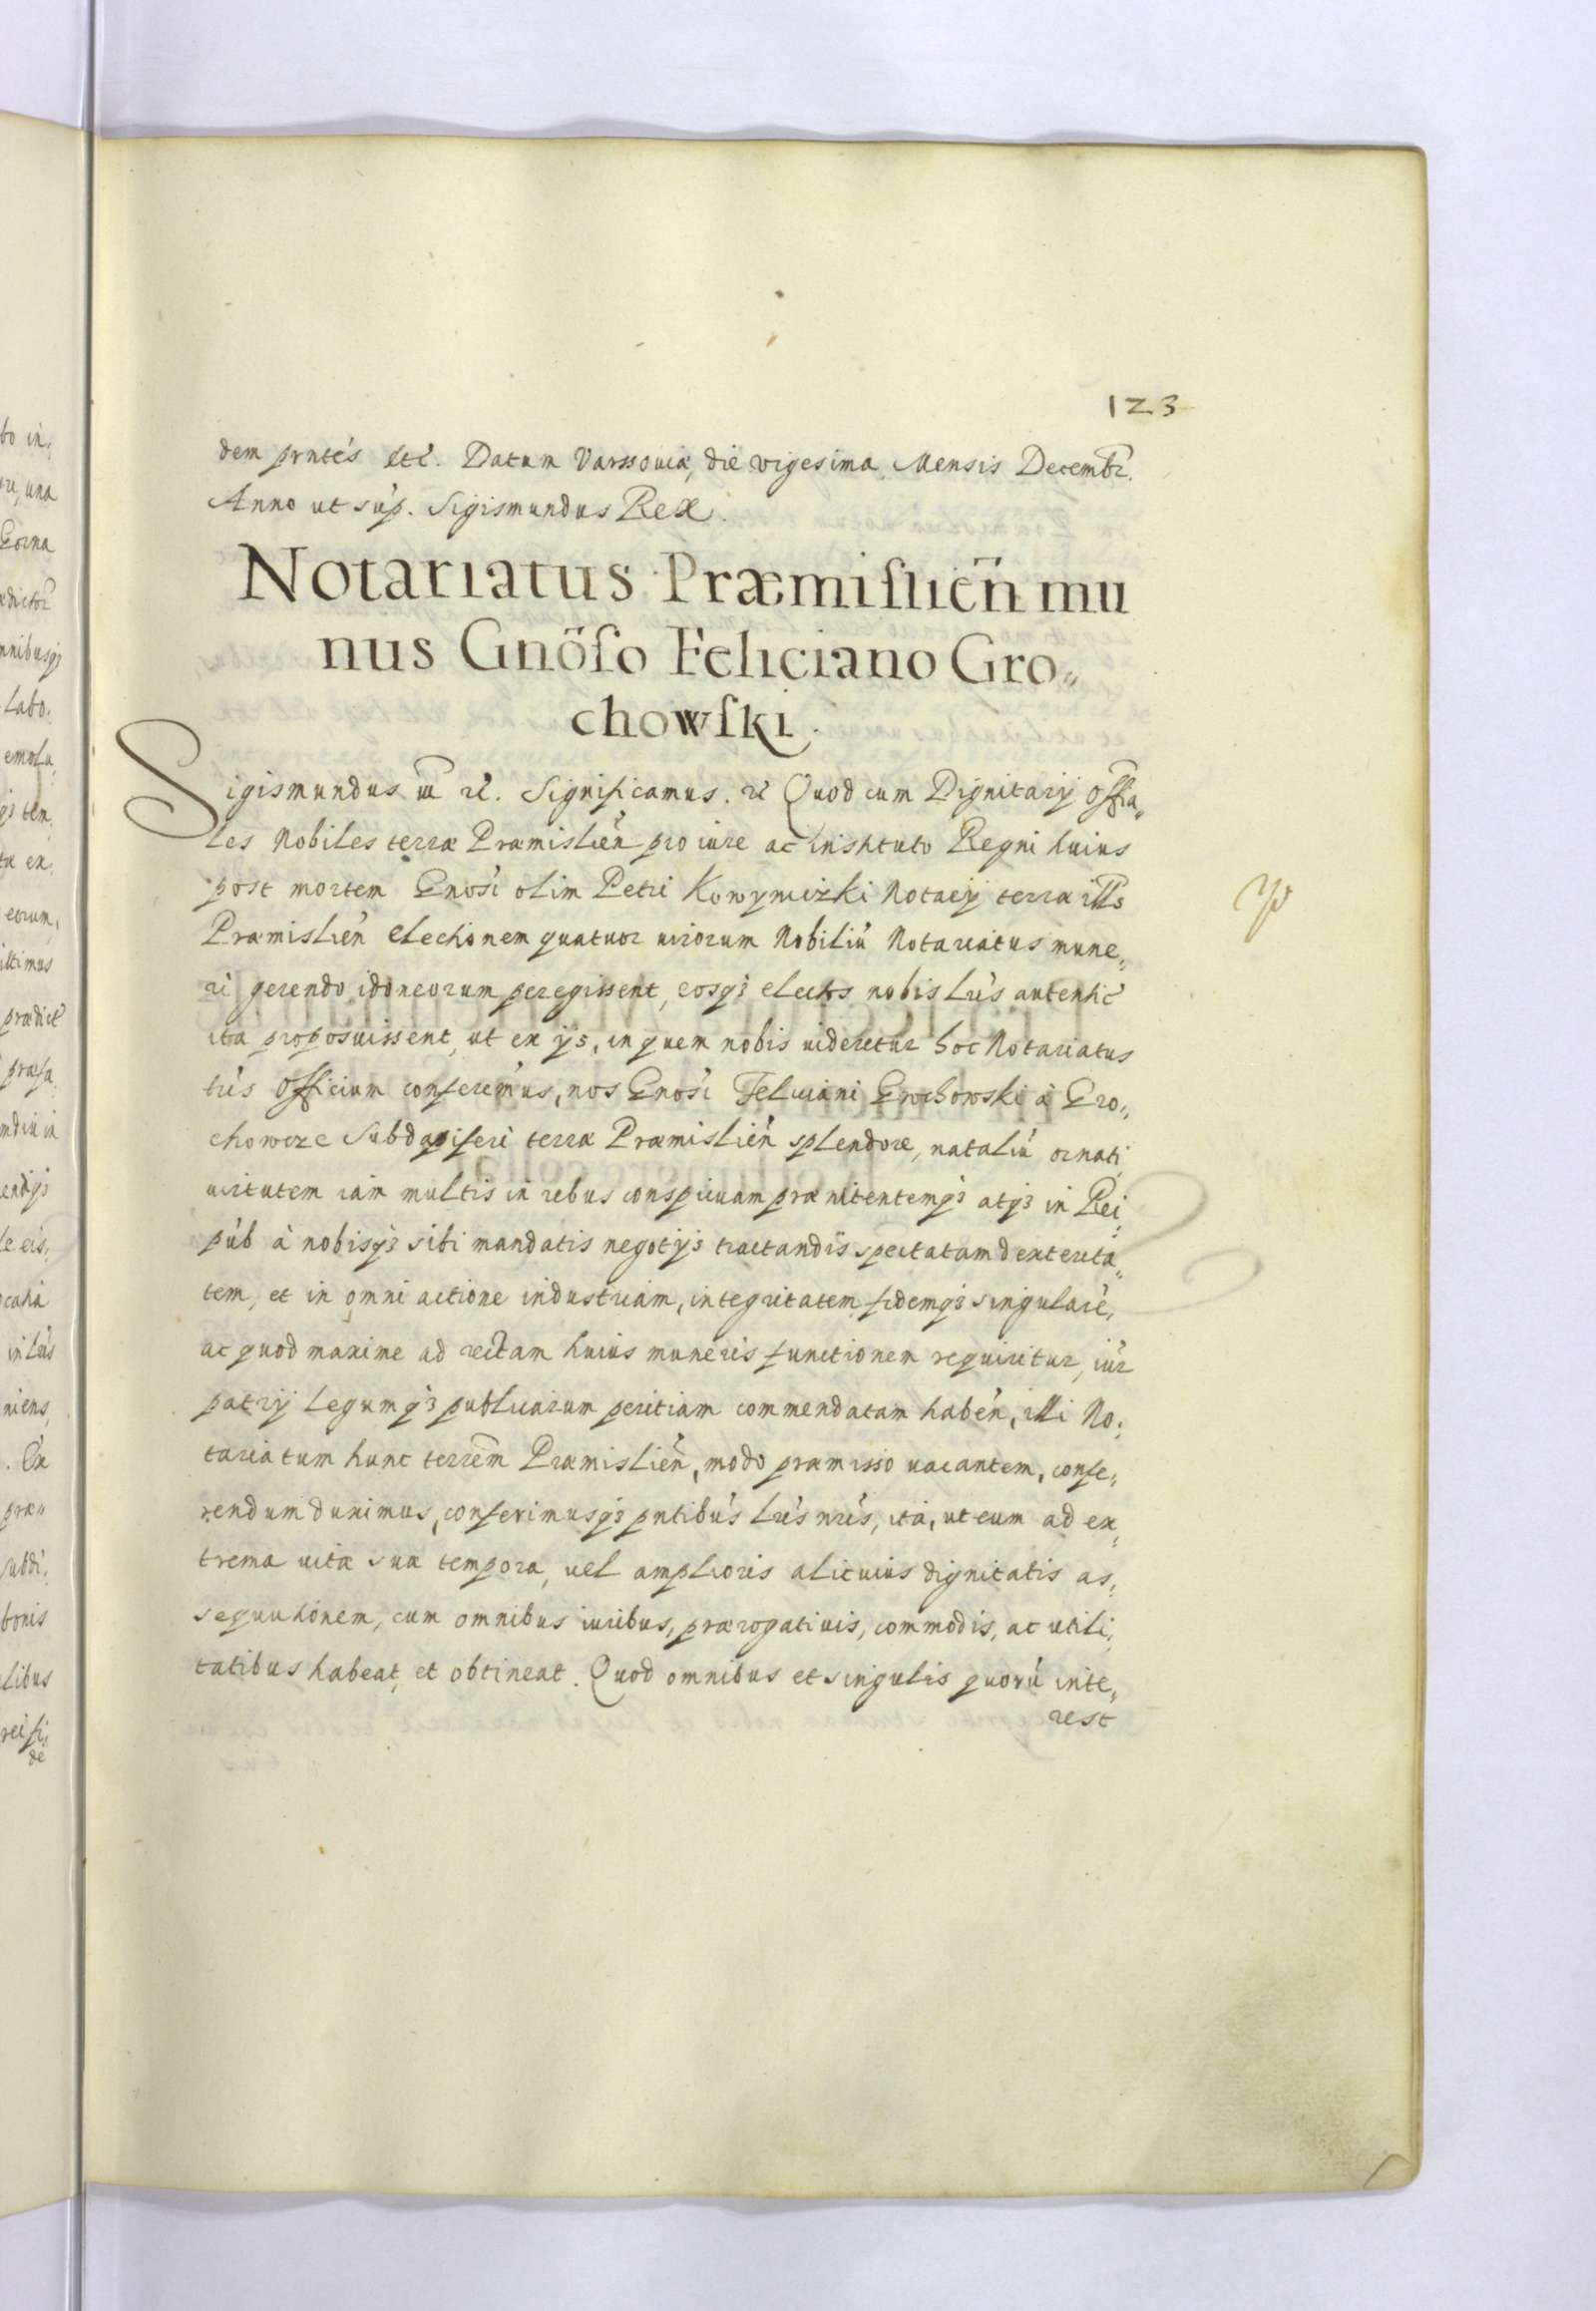 123
dem prntés etc̃. Datum Varssouiæ, die vigesima Mensis Decembr̃.
Anno ut sup. Sigismundus Rex.
Notariatus Præmiſlien̄ mu
nus Gnōſo Feliciano Gro„
chowſki.
Sigismundus iii rc̃. Significamus. rc̃ Quod cum Dignitarij Offia„
les Nobiles terræ Præmislien̄ pro iure ac instituto Regni huius
post mortem Gnosi olim Petri Notarij terræ illius
Præmislien̄ electionem quatuor uirorum Nobiliū Notariatus mune„
ri gerendo idoneorum peregissent, eosq₃ electos nobis Lris autentic̄
ita proposuissent, ut ex ijs, in quem nobis uideretur hoc Notariatus
tris Officium conferemus, nos Gnosi Feliciani Grochowski à Gro„
chowcze Subdapiferi terræ Præmislien̄ splendore, nataliū ornati,
uirtutem iam multis in rebus conspicuam prænitentemq₃ atq₃ in Rei„
pub à nobisq₃ sibi mandatis negotijs tractandis spectatam dexterita„
tem, et in omni actione industriam, integritatem fidemq₃ singularē,
ac quod maxime ad rectam huius muneris functionem requiritur, iur̄
patrij Legumq₃ publicarum peritiam commendatam haben̄, illi No„
tariatum hunc terrēm Præmislien̄, modo præmisso uacantem, confe„
rendum duximus, conferimusq₃ pntibus Lris nris, ita, ut eum ad ex„
trema uitæ suæ tempora, uel amplioris alicuius dignitatis as„
sequutionem, cum omnibus iuribus, prærogatiuis, commodis, ac utili„
tatibus habeat et obtineat. Quod omnibus et singulis quorū inte„
rest